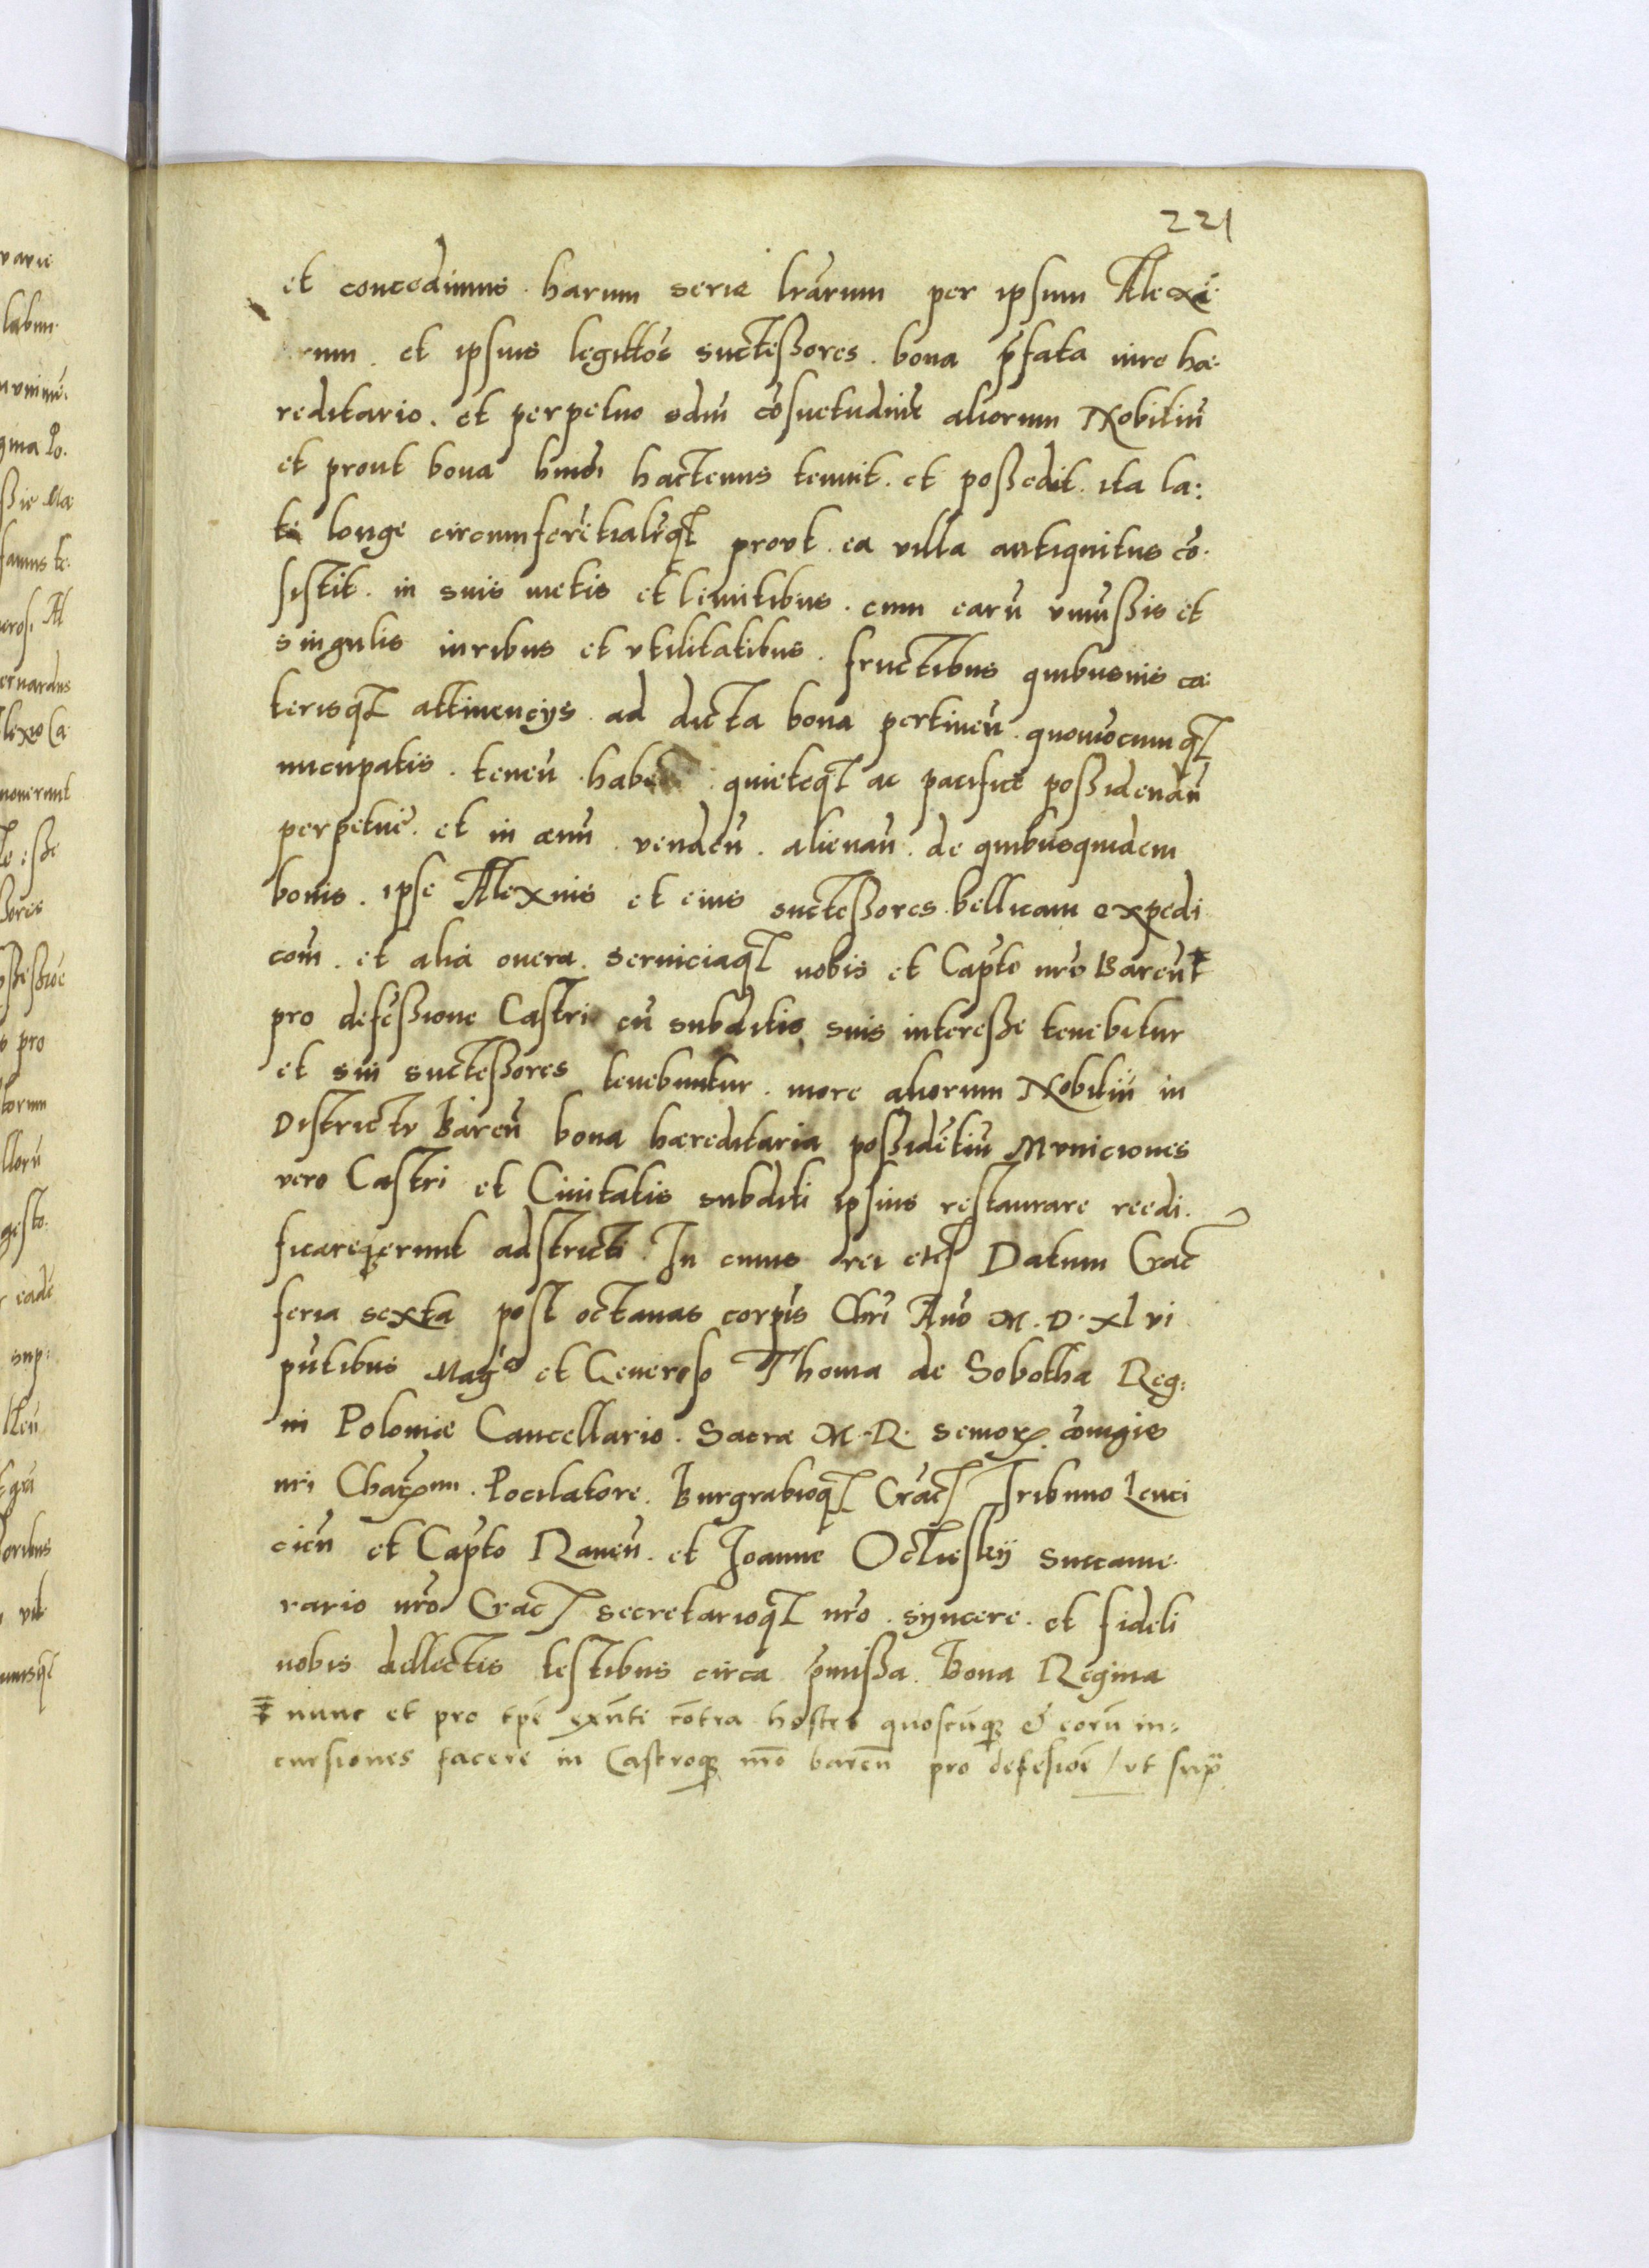 221
et concedimus. harum serie lrarum per ipsum Alexi-
um. et ipsius legittos successores. bona pfata iure hæ-
reditario. et perpetuo sdm cosuetudine aliorum Nobiliu
et prout bona hmoi hactenus tenuit. et possedit. ita la:
te longe circumferetialeqz prout. ea villa antiquitus co-
sistit. in suis metis et limitibus. cum earu vniussis et
singulis iuribus et vtilitatibus. fructibus quibusuis cæ-
terisqz attinencijs ad dicta bona pertinen. quouocumqz
nucupatis. tenen. quieteqz ac pacifice possidendu
perpetue. et in æuu. venden. alienan. de quibusquidem
bonis. ipse Alexius et eius successores. bellicam expedi
com. et alia onera. seruiciaqz nobis et Capto nro Baren
pro defessione Castri cu subditis suis interesse tenebitur
et sui successores tenebuntur. more aliorum Nobiliu in
Districtu Baren bona hæreditaria possidetiu Municiones
vero Castri et Ciuitatis subditi ipsius restaurare reedi-
ficareqz erunt adstricti. In cuius rei etc Datum Crac
feria sexta post octauas corpis Chri Ano M. D. xlvi
pntibus Magco et Generoso Thoma de Sobotha Reg:
ni Poloniæ Cancellario. Sacræ M. R. coniugis
nri Pocilatore. Burgrabioqz Crac Tribuno Lenci
cien et Capto Rauen. et Joanne Ocliesky succame-
rario nro Crac secretarioqz nro. syncere. et fideli
nobis dellectis testibus circa pmissa. Bona Regina
nunc et pro tpe exnti cotra hostes quoscuqz & coru in=
cursiones facere in Castroqz nro baren pro defesioe / vt supra